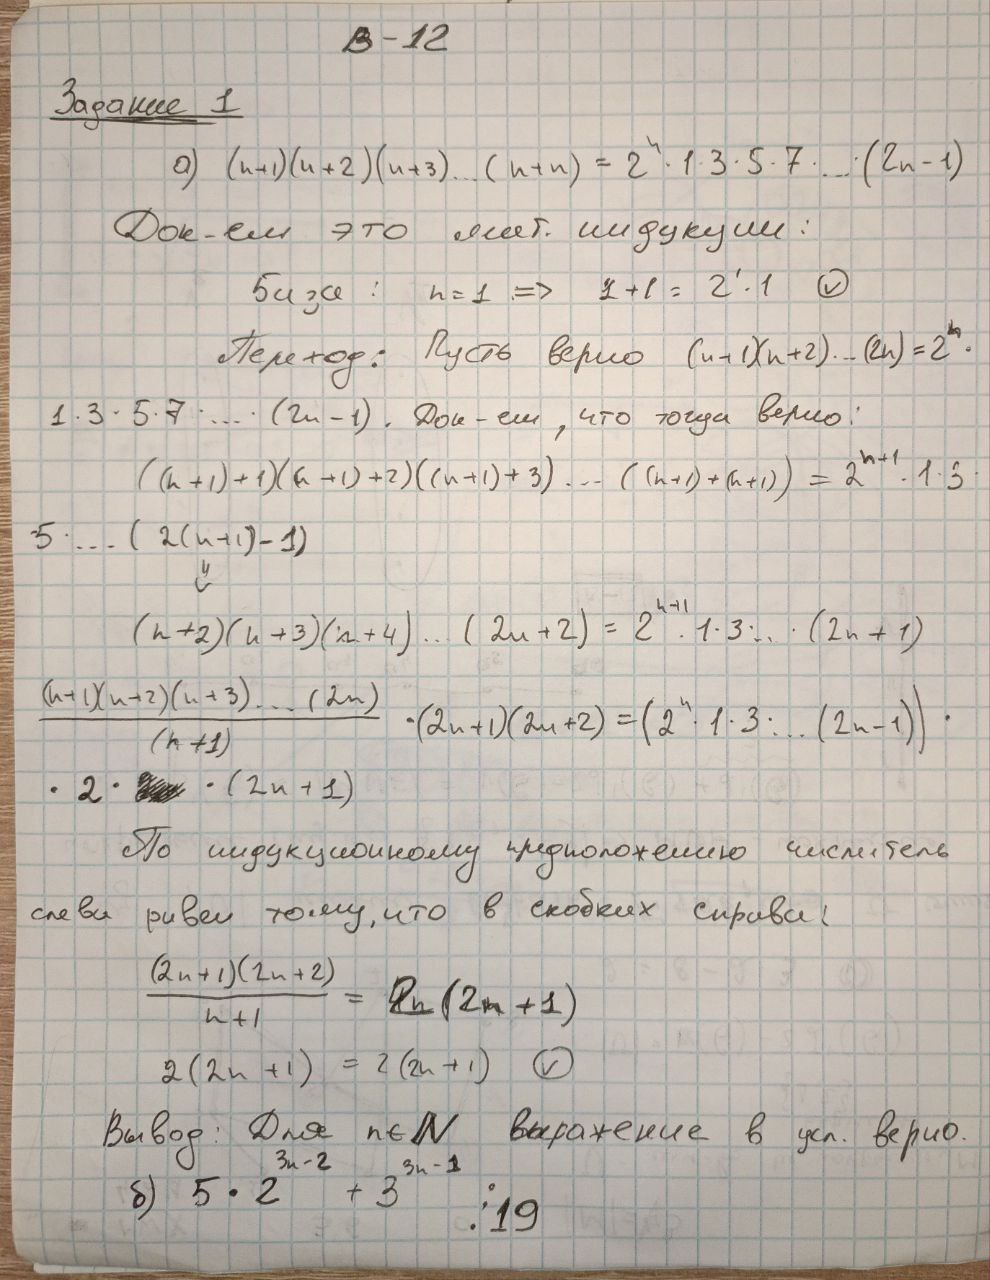 В-12
Задание 1
а) (n+1)(n+2)(n+3)...(n+n) = 2^n · 1 · 3 · 5 · 7 · ... · (2n-1)
Док-ем это мат. индукции:
База: n=1 => 1+1 = 2^1 · 1 ✓
Переход: Пусть верно (n+1)(n+2)...(2n) = 2^n ·
1 · 3 · 5 · 7 · ... · (2n-1). Док-ем, что тогда верно:
((n+1)+1)((n+1)+2)((n+1)+3)...((n+1)+(n+1)) = 2^{n+1} · 1 · 3 ·
5 · ... (2(n+1)-1)
⇓
(n+2)(n+3)(n+4)...(2n+2) = 2^{n+1} · 1 · 3 · ... · (2n+1)
\frac{(n+1)(n+2)(n+3)...(2n)}{(n+1)} · (2n+1)(2n+2) = (2^n · 1 · 3 · ... (2n-1)) ·
· 2 · · (2n+1)
По индукционному предположению числитель
слева равен тому, что в скобках справа:
\frac{(2n+1)(2n+2)}{n+1} = (2n+1)
2(2n+1) = 2(2n+1) ✓
Вывод: Для n∈N выражение в усл. верно.
б) 5 · 2^{3n-2} + 3^{3n-1} ⋮ 19